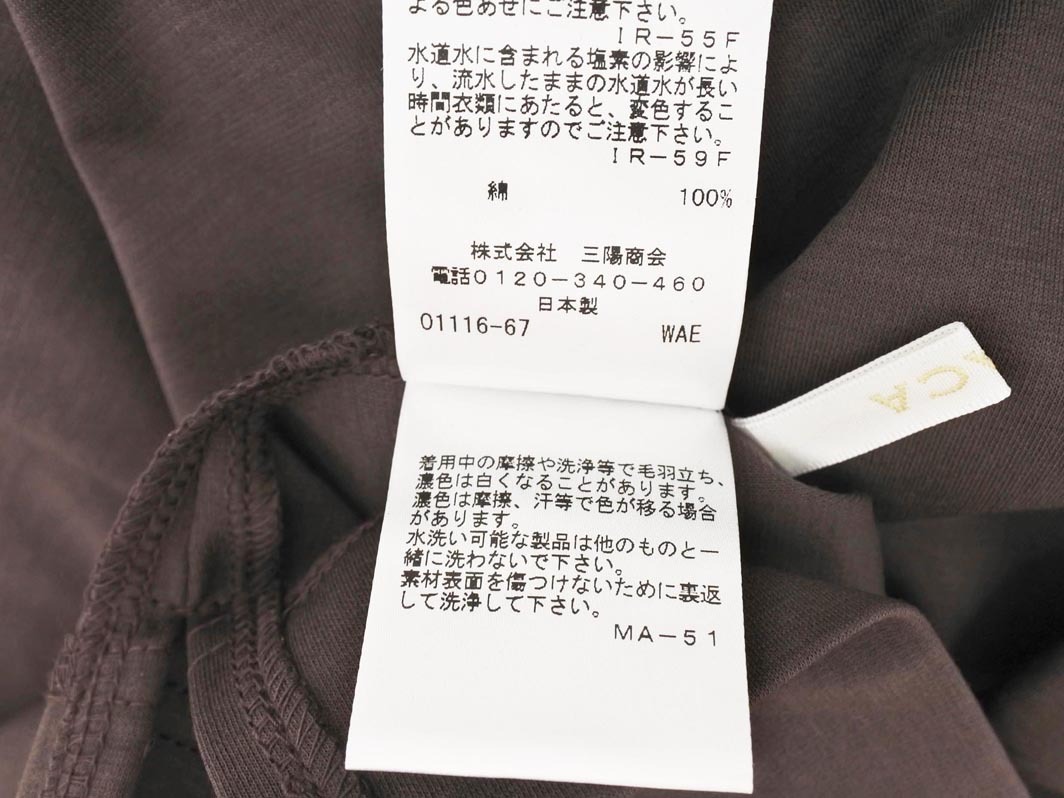 よる色あせにご注意下さい。
IR-55F
水道水に含まれる塩素の影響によ
り、流水したままの水道水が長い
時間衣類にあたると、変色するこ
とがありますのでご注意下さい。
IR-59F
綿 100%
株式会社 三陽商会
電話0120-340-460
日本製
01116-67 WAE
CA
着用中の摩擦や洗浄等で毛羽立ち、
濃色は白くなることがあります。
濃色は摩擦、汗等で色が移る場合
があります。
水洗い可能な製品は他のものと一
緒に洗わないで下さい。
素材表面を傷つけないために裏返
して洗浄して下さい。
MA-51